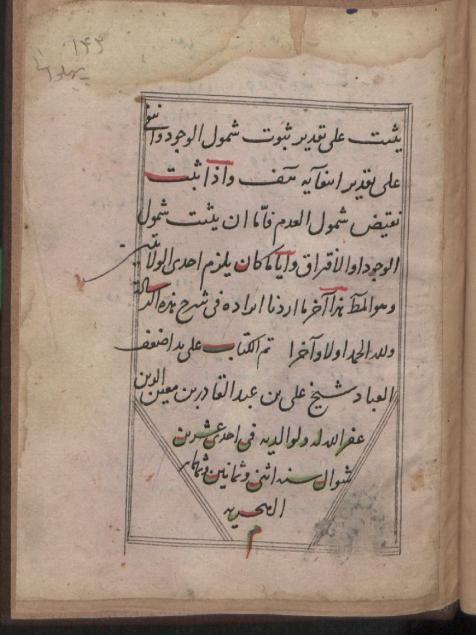 ١٤٣
يثبت على تقدير ثبوت شمول الوجود وانتفى
على تقدير انتفائه واذا ثبت
نقيض شمول العدم فاما ان يثبت شمول
الوجود او الافتراق وايا ما كان يلزم احدى الولايتين
وهو المط هذا آخر ما اردنا ايراده فى شرح هذه الرسالة
ولله الحمد اولا وآخرا تم الكتاب على يد اضعف
العباد شيخ على بن عبد القادر بن معين الدين
غفر الله له ولوالديه فى احدى عشرين
شوال سنه اثنى وثمانين
الهجريه
م